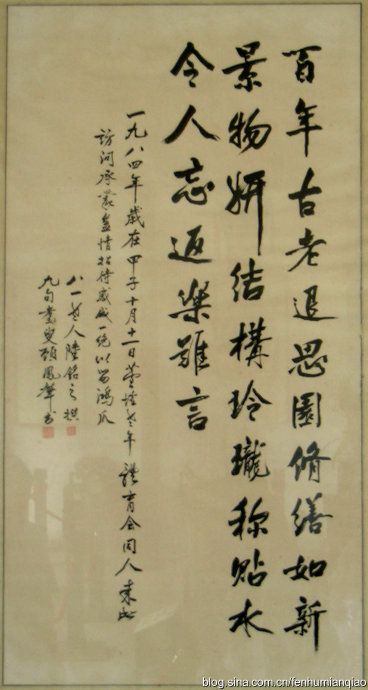 百年古老退思園脩繕如新
景物妍結構玲瓏称貼水
令人忘返樂難言
一九八四年歲在甲子十月十一日蘆墟老年體育会同人来此
訪问承蒙盛情招待感成一绝以留鴻爪
八一老人陸銘之撰
九旬耄叟顧鳳聲书
blog.sina.com.cn/fenhumianqiao